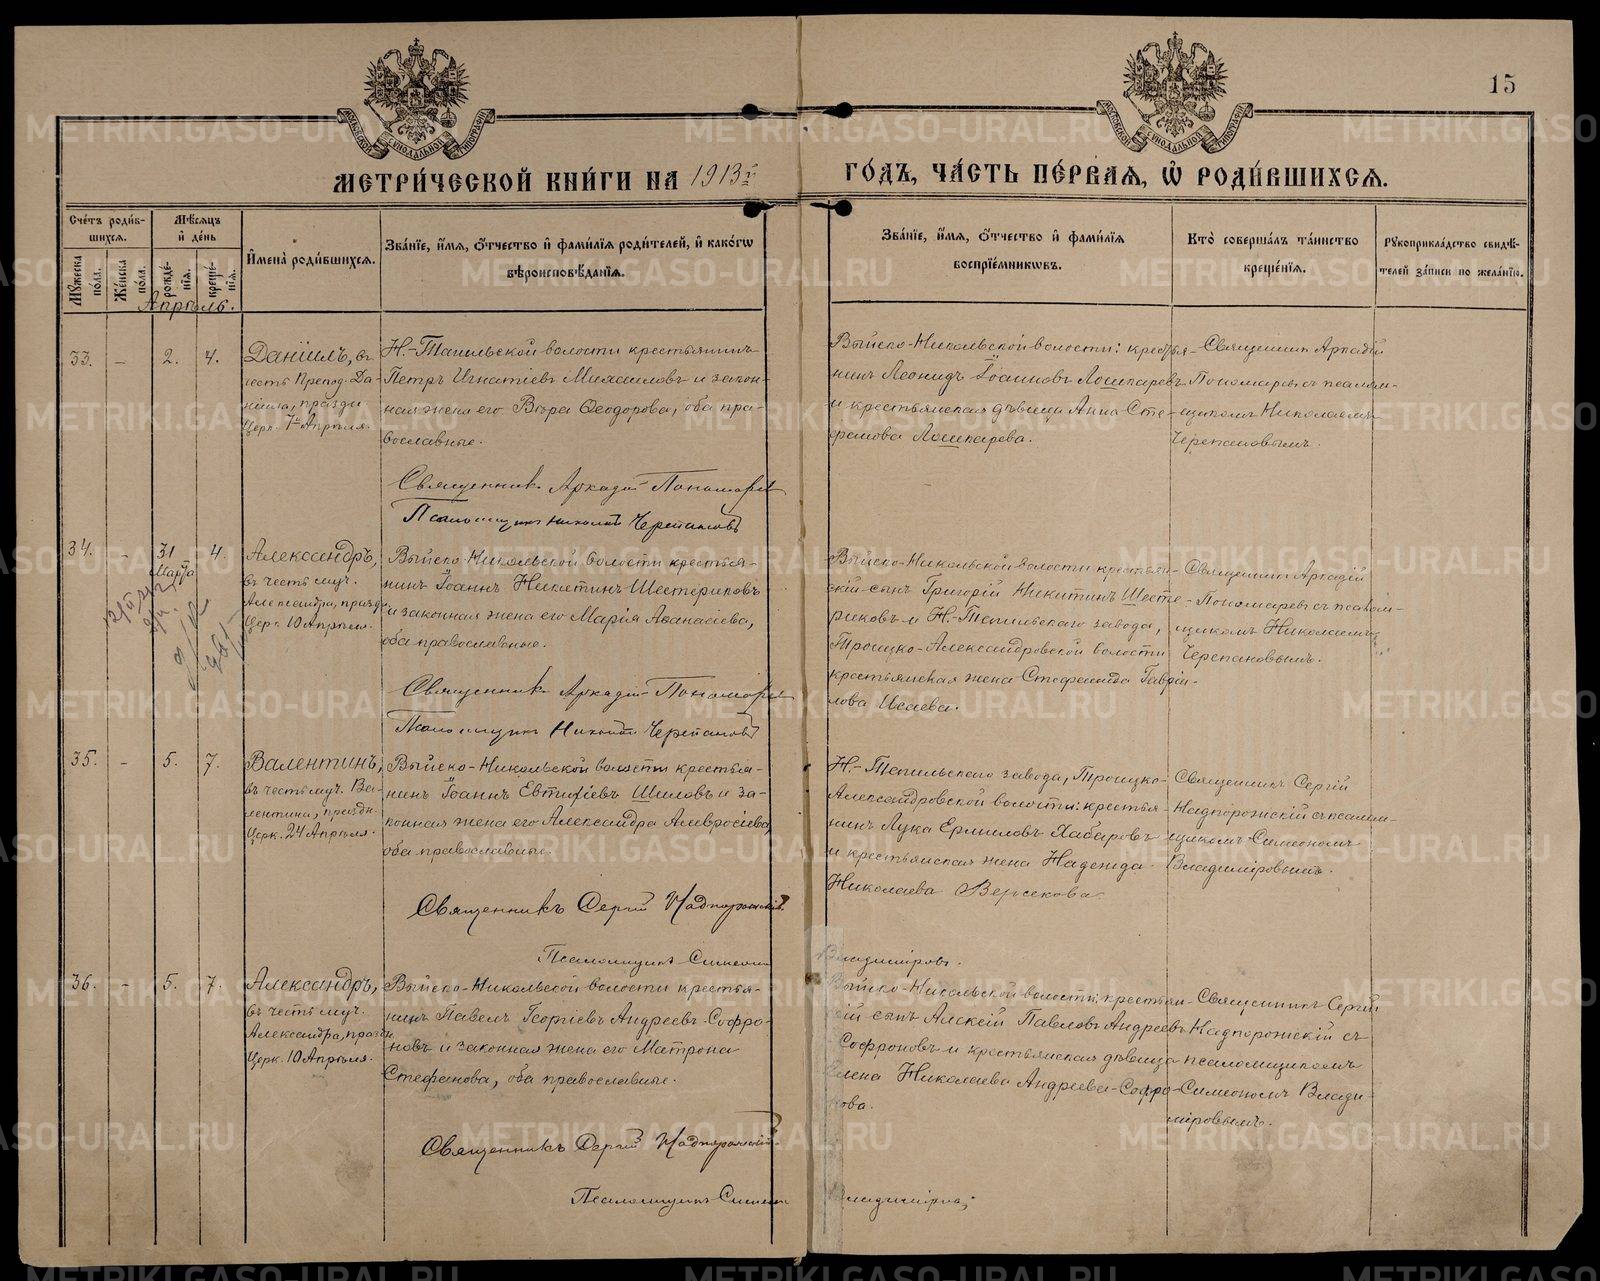 15
МЕТРИ́ЧЕСКОЙ КНИ́ГИ НА 1913й
ГО́ДЪ, ЧА́СТЬ ПЕ́РВАѦ, Ѿ РОДИ́ВШИХСѦ.
Сче́тъ роди́в-
шихсѧ.
Мѣ́сѧцъ
и҆ де́нь
И҆мена̀ роди́вшихсѧ.
Зва́нїе, и҆́мѧ, ѻ҆́тчество и҆ фами́лїѧ роди́телей, и҆ како́гѡ
вѣроисповѣ́данїѧ.
Мꙋ́жеска по́ла.
Же́нска по́ла.
рожде́-нїѧ.
креще́-нїѧ.
Зва́нїе, и҆́мѧ, ѻ҆́тчество и҆ фами́лїѧ
воспрїе́мниковъ.
Кто̀ соверша́лъ та́инство
креще́нїѧ.
Рꙋкоприкла́дство свидѣ́-
телей за́писи по жела́нїю.
Апрѣль.
33.
-
2.
4.
Данiилъ, въ
честь Препод. Да-
нiила, праздн.
Церк. 7го Апрѣля.
Н.-Тагильской волости крестьянинъ
Петръ Игнатiевъ Михаиловъ и закон-
ная жена его Вѣра Ѳеодорова, оба пра-
вославные.
Священникъ Аркадiй Пономаревъ
Псаломщикъ Николай Черепановъ
Выйско-Никольской волости: крестья-
нинъ Леонидъ Iоанновъ Лошкаревъ
и крестьянская дѣвица Анна Сте-
фанова Лошкарева.
Священник Аркадiй
Пономаревъ съ псалом-
щикомъ Николаемъ
Черепановымъ.
34.
-
31
Марта
4.
Александръ,
въ честь муч.
Александра, празд.
Церк. 10 Апрѣля.
Выйско-Никольской волости крестья-
нинъ Iоаннъ Никитинъ Шестериковъ
и законная жена его Марiя Аѳанасiева,
оба православные.
Священникъ Аркадiй Пономаревъ
Псаломщикъ Николай Черепановъ
Выйско-Никольской волости крестьян-
скiй сынъ Григорiй Никитинъ Шесте-
риковъ и Н.-Тагильскаго завода,
Троицко-Александровской волости
крестьянская жена Стефанида Гаврiи-
лова Исаева.
Священник Аркадiй
Пономаревъ съ псалом-
щикомъ Николаемъ
Черепановымъ.
35.
-
5.
7.
Валентинъ,
въ честь муч. Ва-
лентина, праздн.
Церк. 24 Апрѣля.
Выйско-Никольской волости крестья-
нинъ Iоаннъ Евтихiевъ Шиловъ и за-
конная жена его Александра Амвросiева,
оба православные.
Священникъ Сергiй Надпорожскiй.
Псаломщикъ Симеонъ
Владимiровъ.
Н.-Тагильскаго завода, Троицко-
Александровской волости: крестья-
нинъ Лука Ермиловъ Хабаровъ
и крестьянская жена Надежда
Николаева Версекова
Священникъ Сергiй
Надпорожскiй съ псалом-
щикомъ Симеономъ
Владимiровымъ.
36.
-
5.
7.
Александръ,
въ честь муч.
Александра, праздн.
Церк. 10 Апрѣля.
Выйско-Никольской волости крестья-
нинъ Павелъ Георгiевъ Андреевъ-Софро-
новъ и законная жена его Матрона
Стефанова, оба православные.
Священникъ Сергiй Надпорожскiй.
Псаломщикъ Симеонъ
Владимiровъ.
Выйско-Никольской волости: крестьян-
скiй сынъ Алексiй Павловъ Андреевъ
Софроновъ и крестьянская дѣвица
Елена Николаева Андреева-Софро-
нова.
Священникъ Сергiй
Надпорожскiй съ
псаломщикомъ
Симеономъ Влади-
мiровымъ.
METRIKI.GASO-URAL.RU